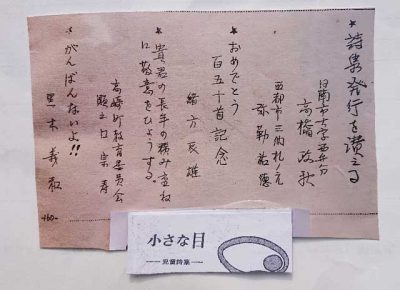 *詩集発行を讃える
日南市大字西弁分
高橋政秋
西都市三納札ノ元
弥勒祐徳
おめでとう
百五十首記念
緒方良雄
貴君の長年の積み重ね
に敬意をひょうする。
高崎町教育委員会
瀬之口宗寿
*がんばんないよ!!
黒木義
小さな目
児童詩集